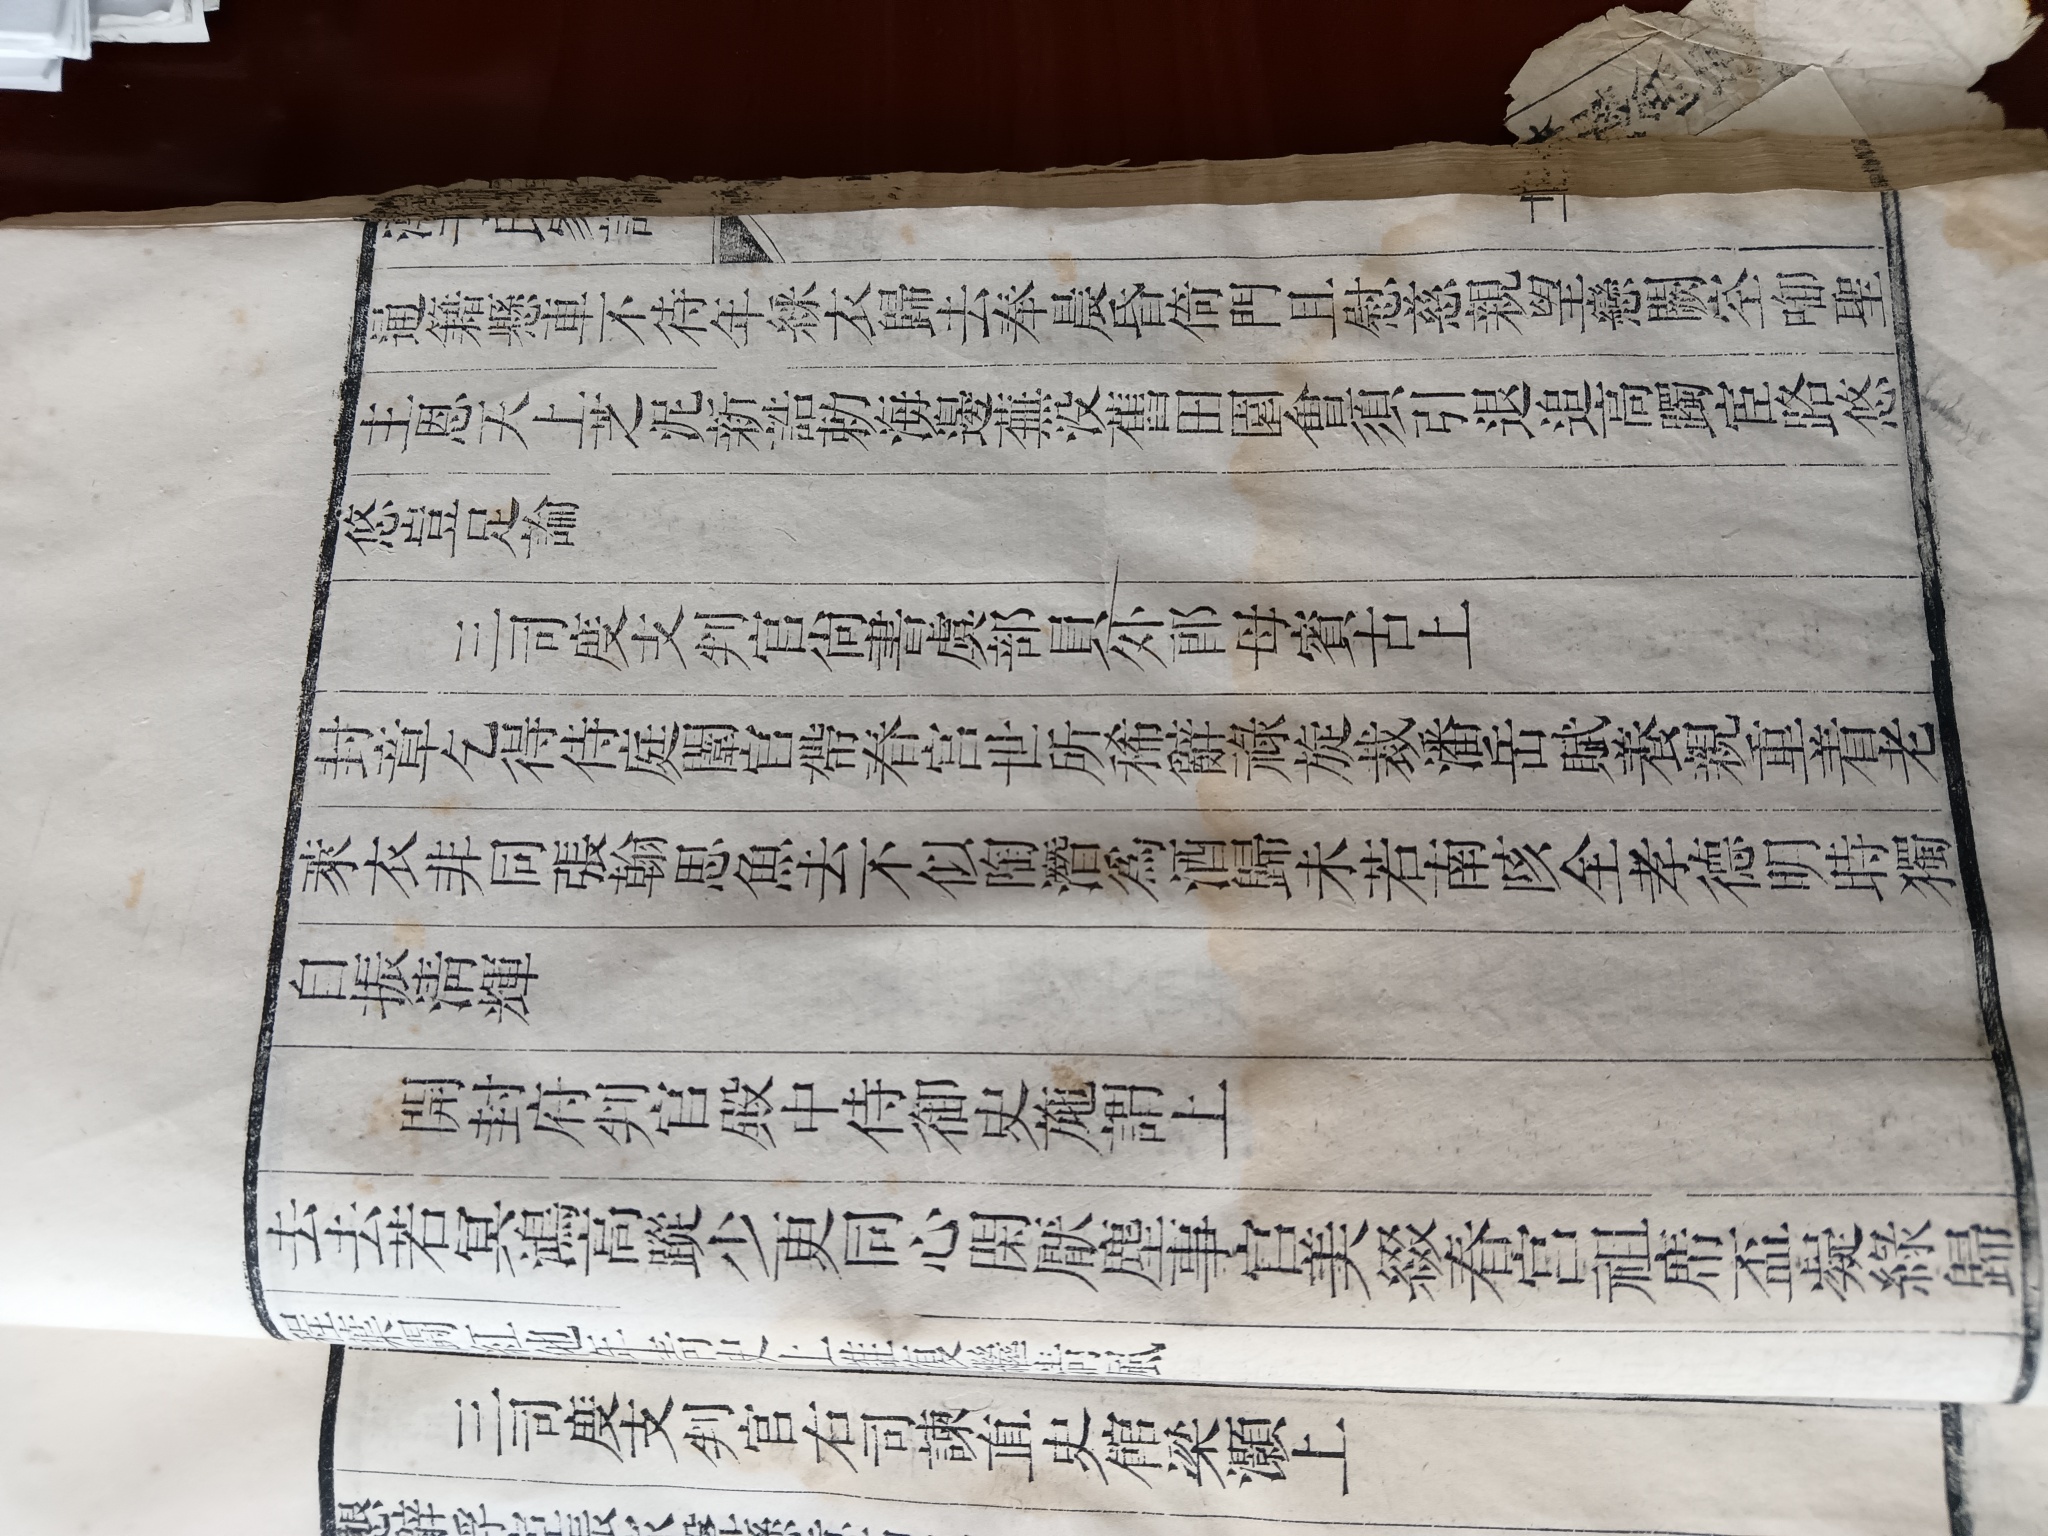 通籍懸車不待年綵衣歸去奉晨昏倚門且慰慈親望戀闕空銜聖
主恩天上芝泥新誥勅海邊蕪没舊田園會須引退追高躅宦路悠
悠豈足論
三司度支判官尚書虞部員外郎毋賓古上
封章乞得侍庭闈官帶春宮世所稀辭祿旋裁潘岳賦養親重着老
萊衣非同張翰思魚去不似陶潛爲酒歸未若南陔全孝德明時獨
自振清輝
開封府判官殿中侍御史施謂上
去去若冥鴻高蹤少更同心閑厭塵事官美綴春宮祖席盃凝綠歸
程葉紅他年青史上復繼清風
三司度支判官右司諫直史館梁灝上